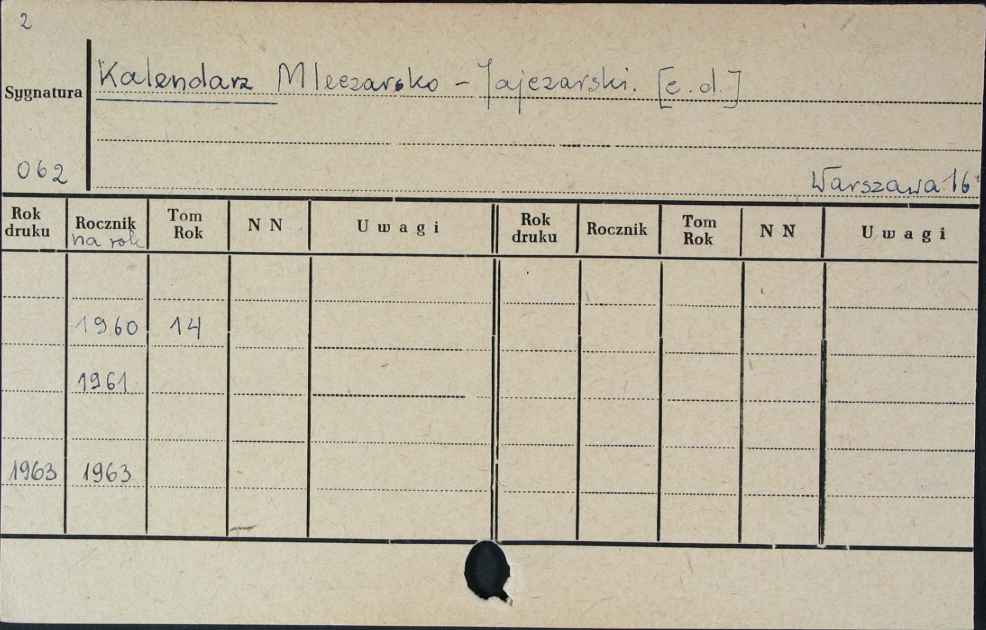 2
Kalendarz Mleczarsko - Jajczarski. [c.d.]
Sygnatura
062
Warszawa 16
Rok druku Rocznik na rok Tom Rok NN Uwagi Rok druku Rocznik Tom Rok NN Uwagi
1960 14
1961
1963 1963